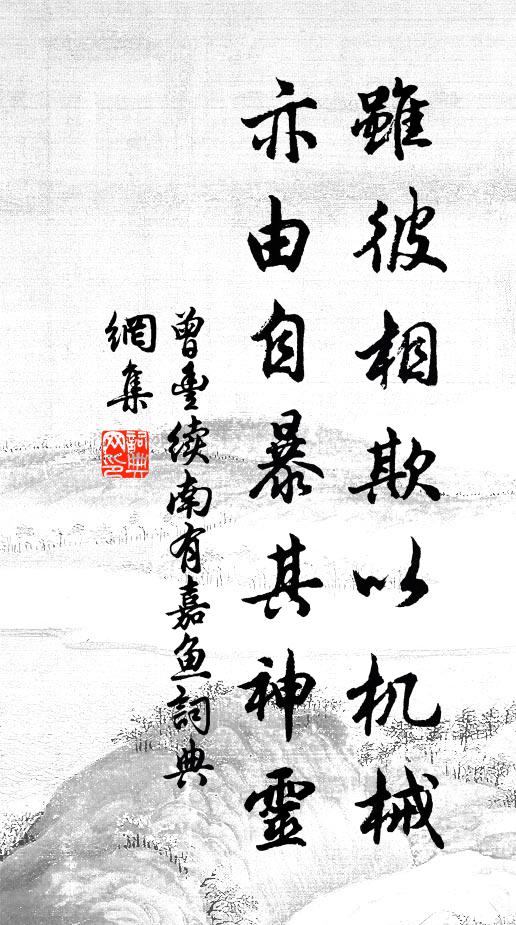 雖彼相欺以机械
亦由自暴其神靈
曾豊续南有嘉鱼詞典
網集
詞典网印